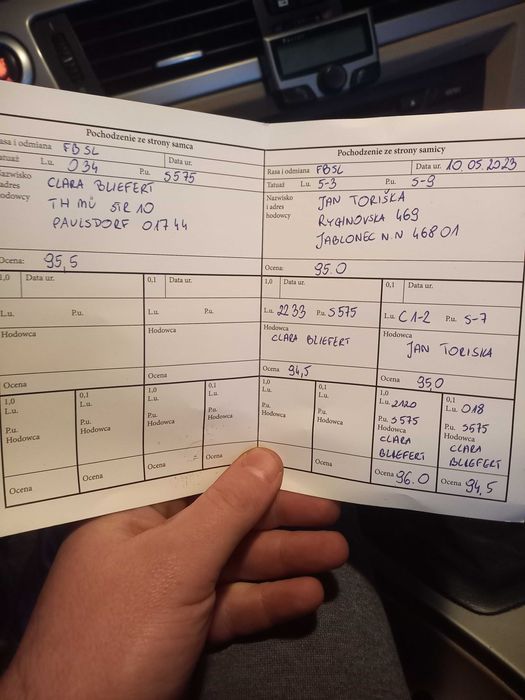 Pochodzenie ze strony samca
Rasa i odmiana FBSL
Tatuaż L.u. 034 P.u. S575 Data ur.
Nazwisko i adres hodowcy
CLARA BLIEFERT
TH MÜ STR 10
PAULSDORF 01744
Ocena: 95,5
1,0 Data ur.
L.u. P.u.
Hodowca
Ocena
0,1 Data ur.
L.u. P.u.
Hodowca
Ocena
1,0
L.u.
P.u.
Hodowca
Ocena
0,1
L.u.
P.u.
Hodowca
Ocena
1,0
L.u.
P.u.
Hodowca
Ocena
0,1
L.u.
P.u.
Hodowca
Ocena
Pochodzenie ze strony samicy
Rasa i odmiana FBSL Data ur. 10.05.2023
Tatuaż L.u. 5-3 P.u. S-9
Nazwisko
i adres
hodowcy
JAN TORIŠKA
RYGINOVSKA 469
JABLONEC N.N 46801
Ocena: 95.0
1,0 Data ur.
L.u. 2233 P.u. S575
Hodowca
CLARA BLIEFERT
Ocena 94,5
0,1 Data ur.
L.u. C1-2 P.u. S-7
Hodowca
JAN TORISKA
Ocena 95,0
1,0
L.u.
P.u.
Hodowca
Ocena
0,1
L.u.
P.u.
Hodowca
Ocena
1,0
L.u. 2120
P.u. S575
Hodowca
CLARA
BLIEFERT
Ocena 96.0
0,1
L.u. 018
P.u. S675
Hodowca
CLARA
BLIEFERT
Ocena 94,5